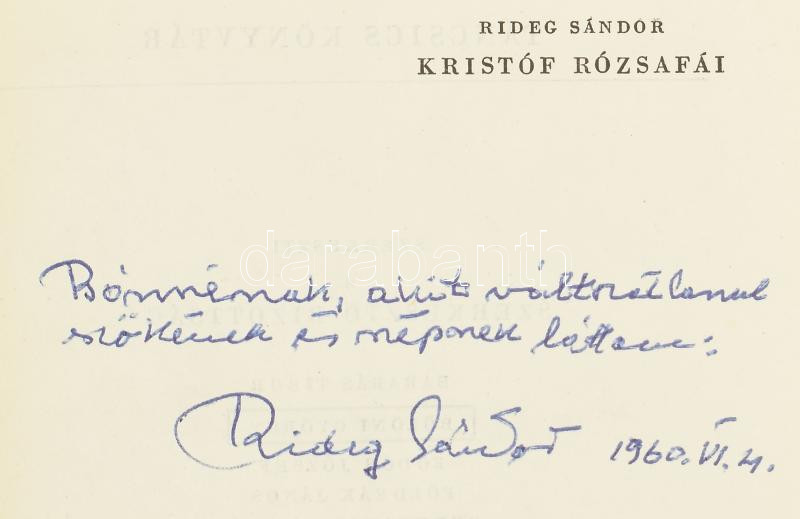 RIDEG SÁNDOR
KRISTÓF RÓZSAFÁI
darabanth
akit változatlanul
szőkének és szépnek láttam:
Rideg Sándor 1960. VI. 4.